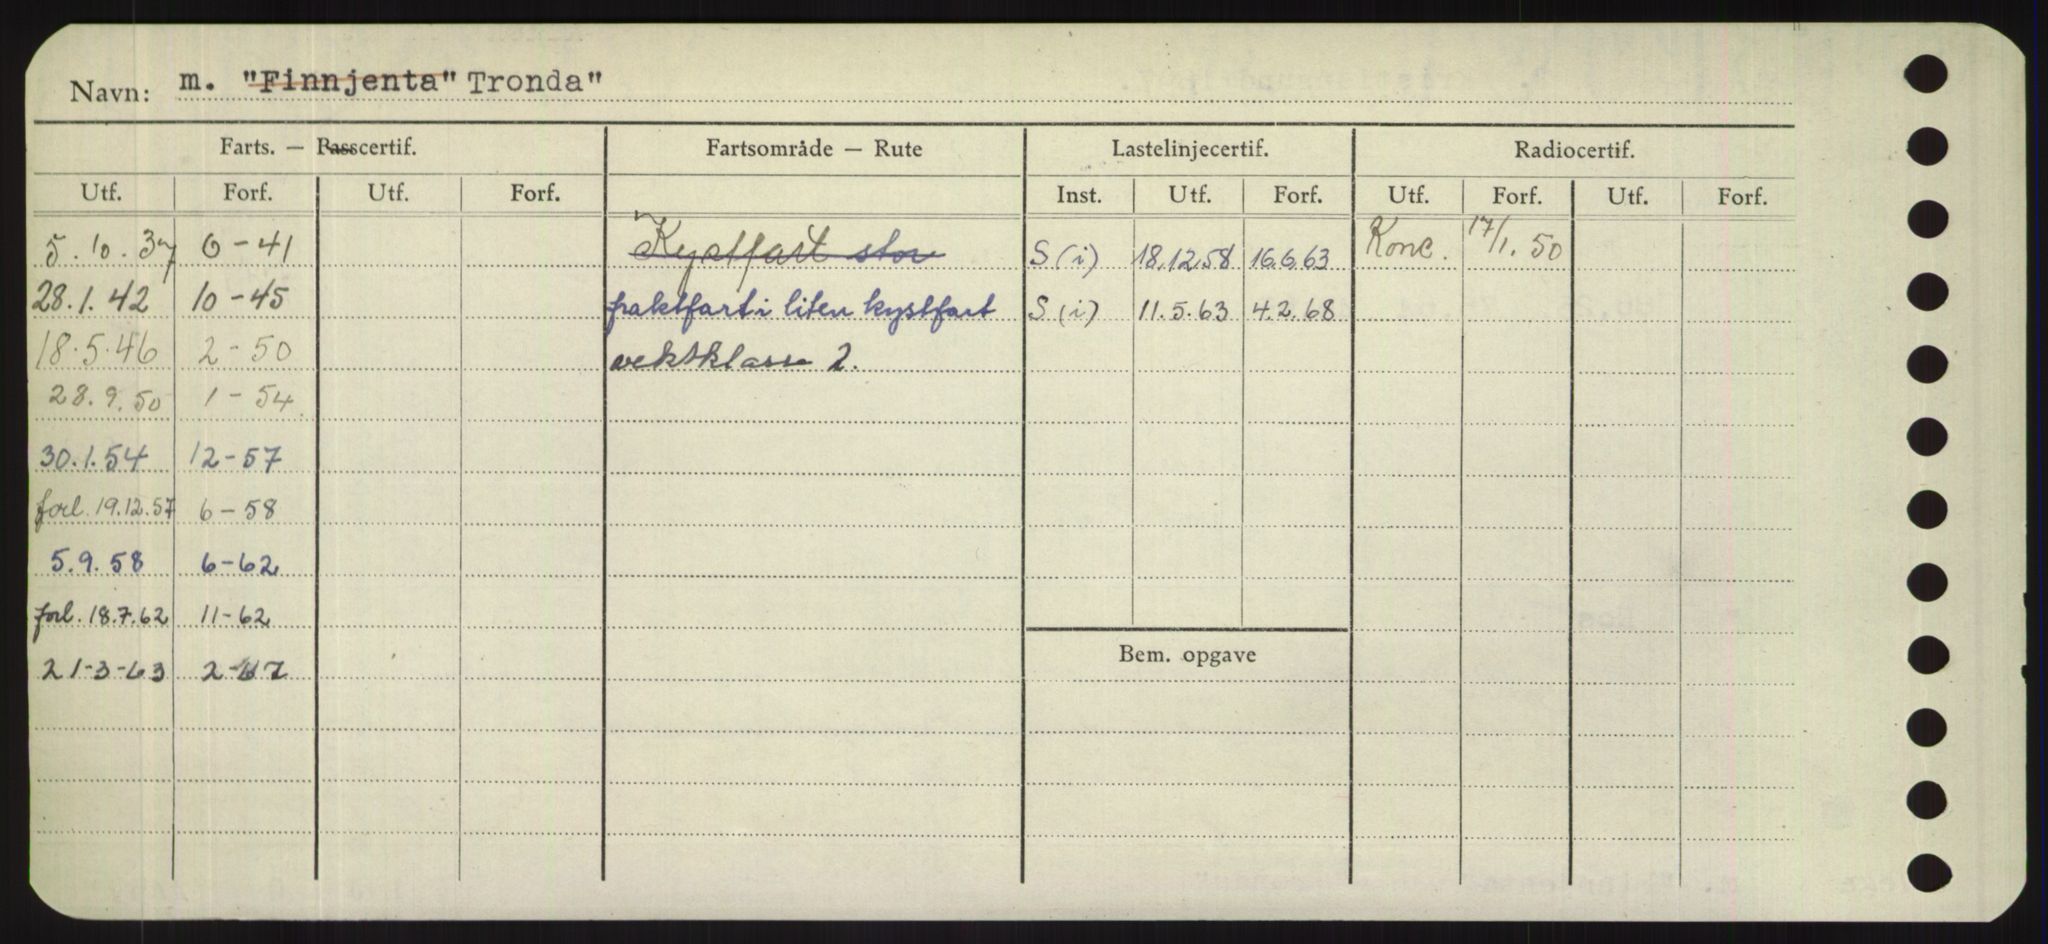 Navn: m. "Finnjenta" Tronda"
Farts. — Passcertif. Fartsområde — Rute Lastelinjecertif. Radiocertif.
Utf. Forf. Utf. Forf. Inst. Utf. Forf. Utf. Forf. Utf. Forf.
5.10.37 6-41 Kystfart stor S (i) 18.12.58 16.6.63 Konc. 17/1.50
28.1.42 10-45 fraktfart i liten kystfart S (i) 11.5.63 4.2.68
18.5.46 2-50 vektklasse 2.
28.9.50 1-54
30.1.54 12-57
forl. 19.12.57 6-58
5.9.58 6-62
forl. 18.7.62 11-62
Bem. opgave
21-3-63 2-67